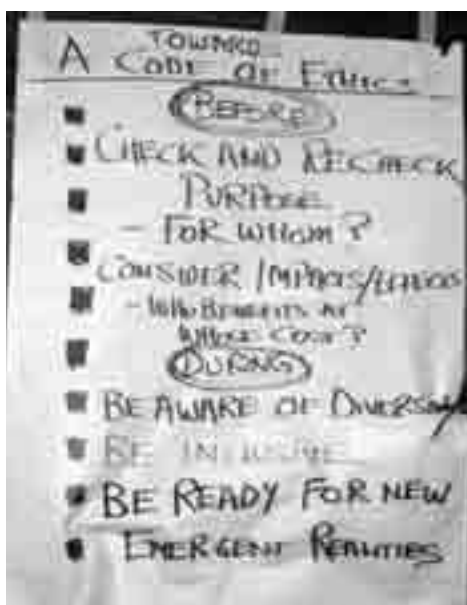 TOWARDS
A CODE OF ETHICS
BEFORE
CHECK AND RECHECK
PURPOSE
- FOR WHOM?
CONSIDER IMPACTS/
- WHO BENEFITS AT
WHOSE COST?
DURING
BE AWARE OF DIVERSITY
BE INCLUSIVE
BE READY FOR NEW
EMERGENT REALITIES